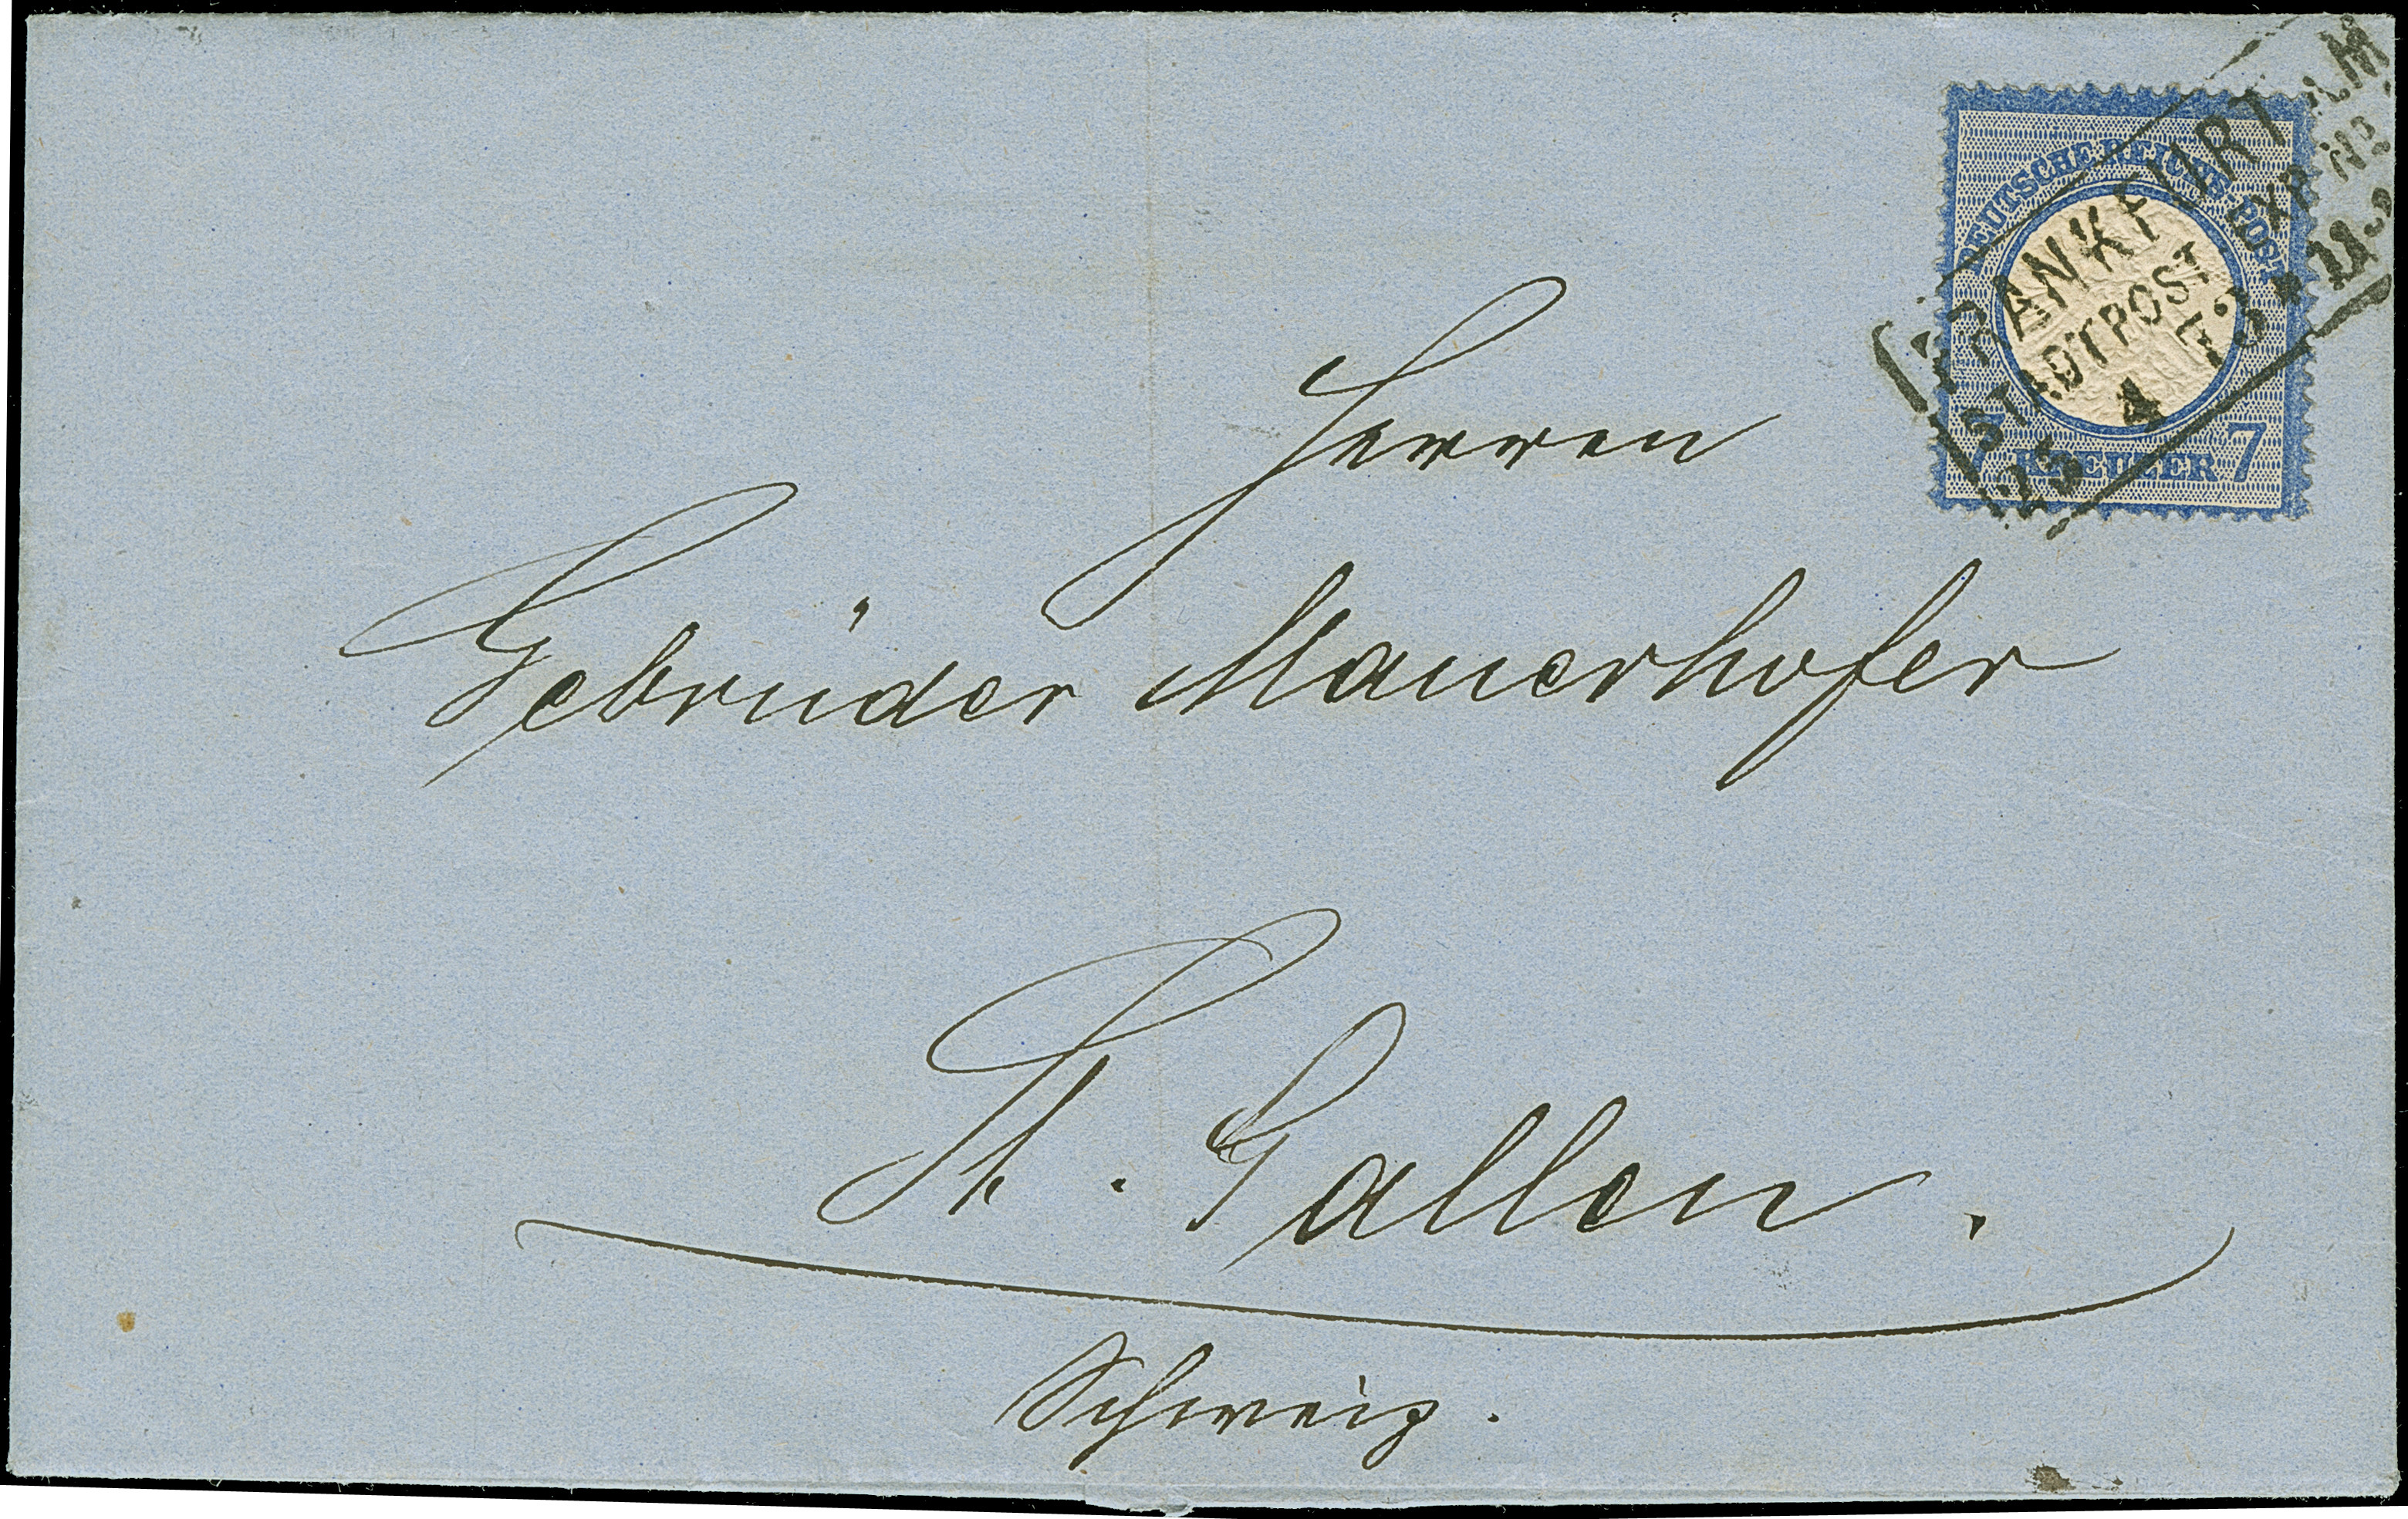 Herren
Gebrüder Mauerhofer
St. Gallen.
Schweiz.
DEUTSCHE REICHS-POST
7 KREUZER 7
FRANKFURT A.M
STADTPOST
25 4